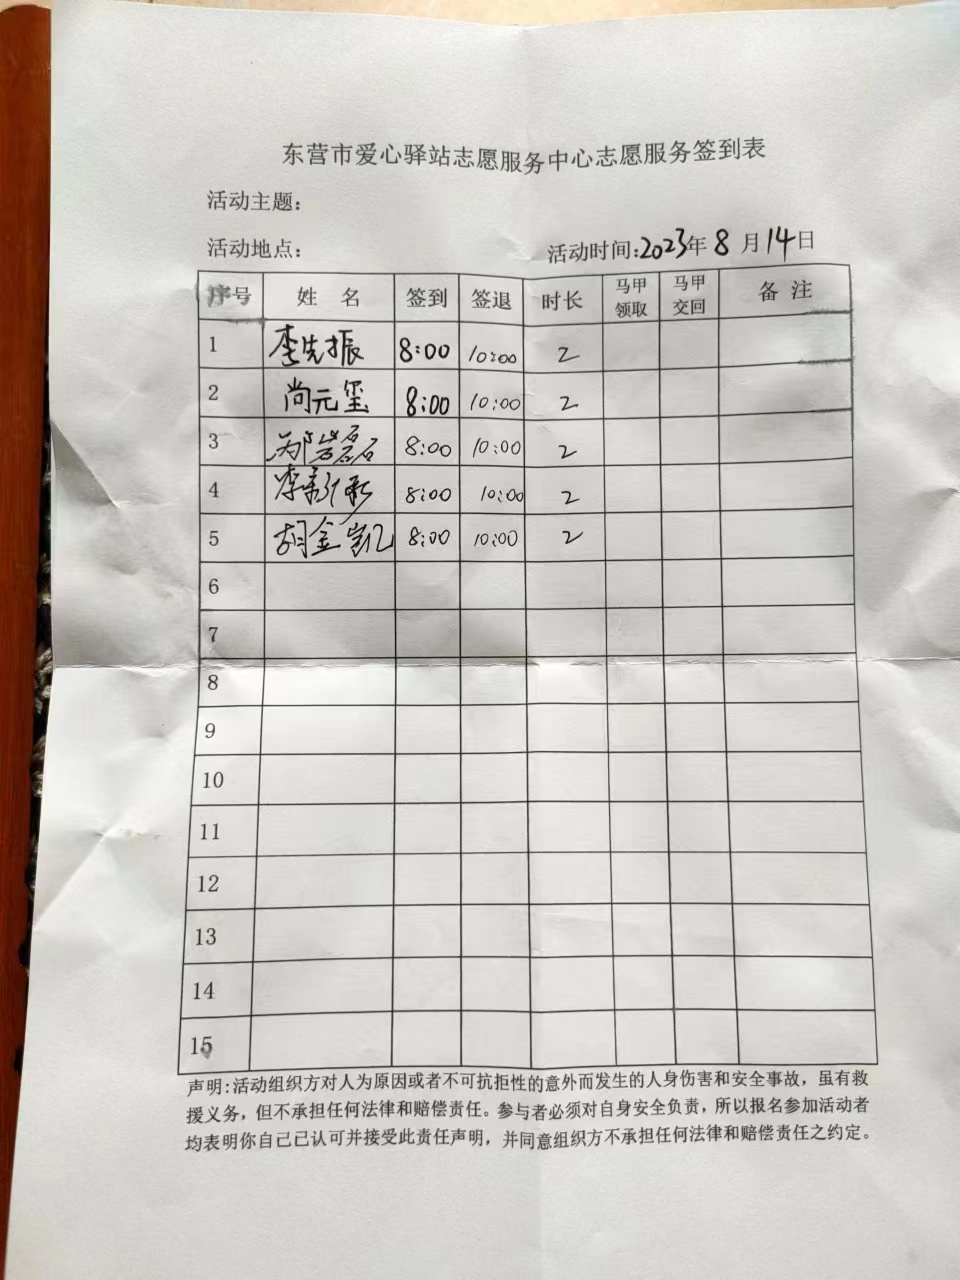 东营市爱心驿站志愿服务中心志愿服务签到表
活动主题：
活动地点： 活动时间：2023年 8 月 14日
序号 姓 名 签到 签退 时长 马甲领取 马甲交回 备 注
1 李先振 8:00 10:00 2
2 尚元玺 8:00 10:00 2
3 郑岩磊 8:00 10:00 2
4 李 8:00 10:00 2
5 胡金凯 8:00 10:00 2
6
7
8
9
10
11
12
13
14
15
声明：活动组织方对人为原因或者不可抗拒性的意外而发生的人身伤害和安全事故，虽有救
援义务，但不承担任何法律和赔偿责任。参与者必须对自身安全负责，所以报名参加活动者
均表明你自己已认可并接受此责任声明，并同意组织方不承担任何法律和赔偿责任之约定。